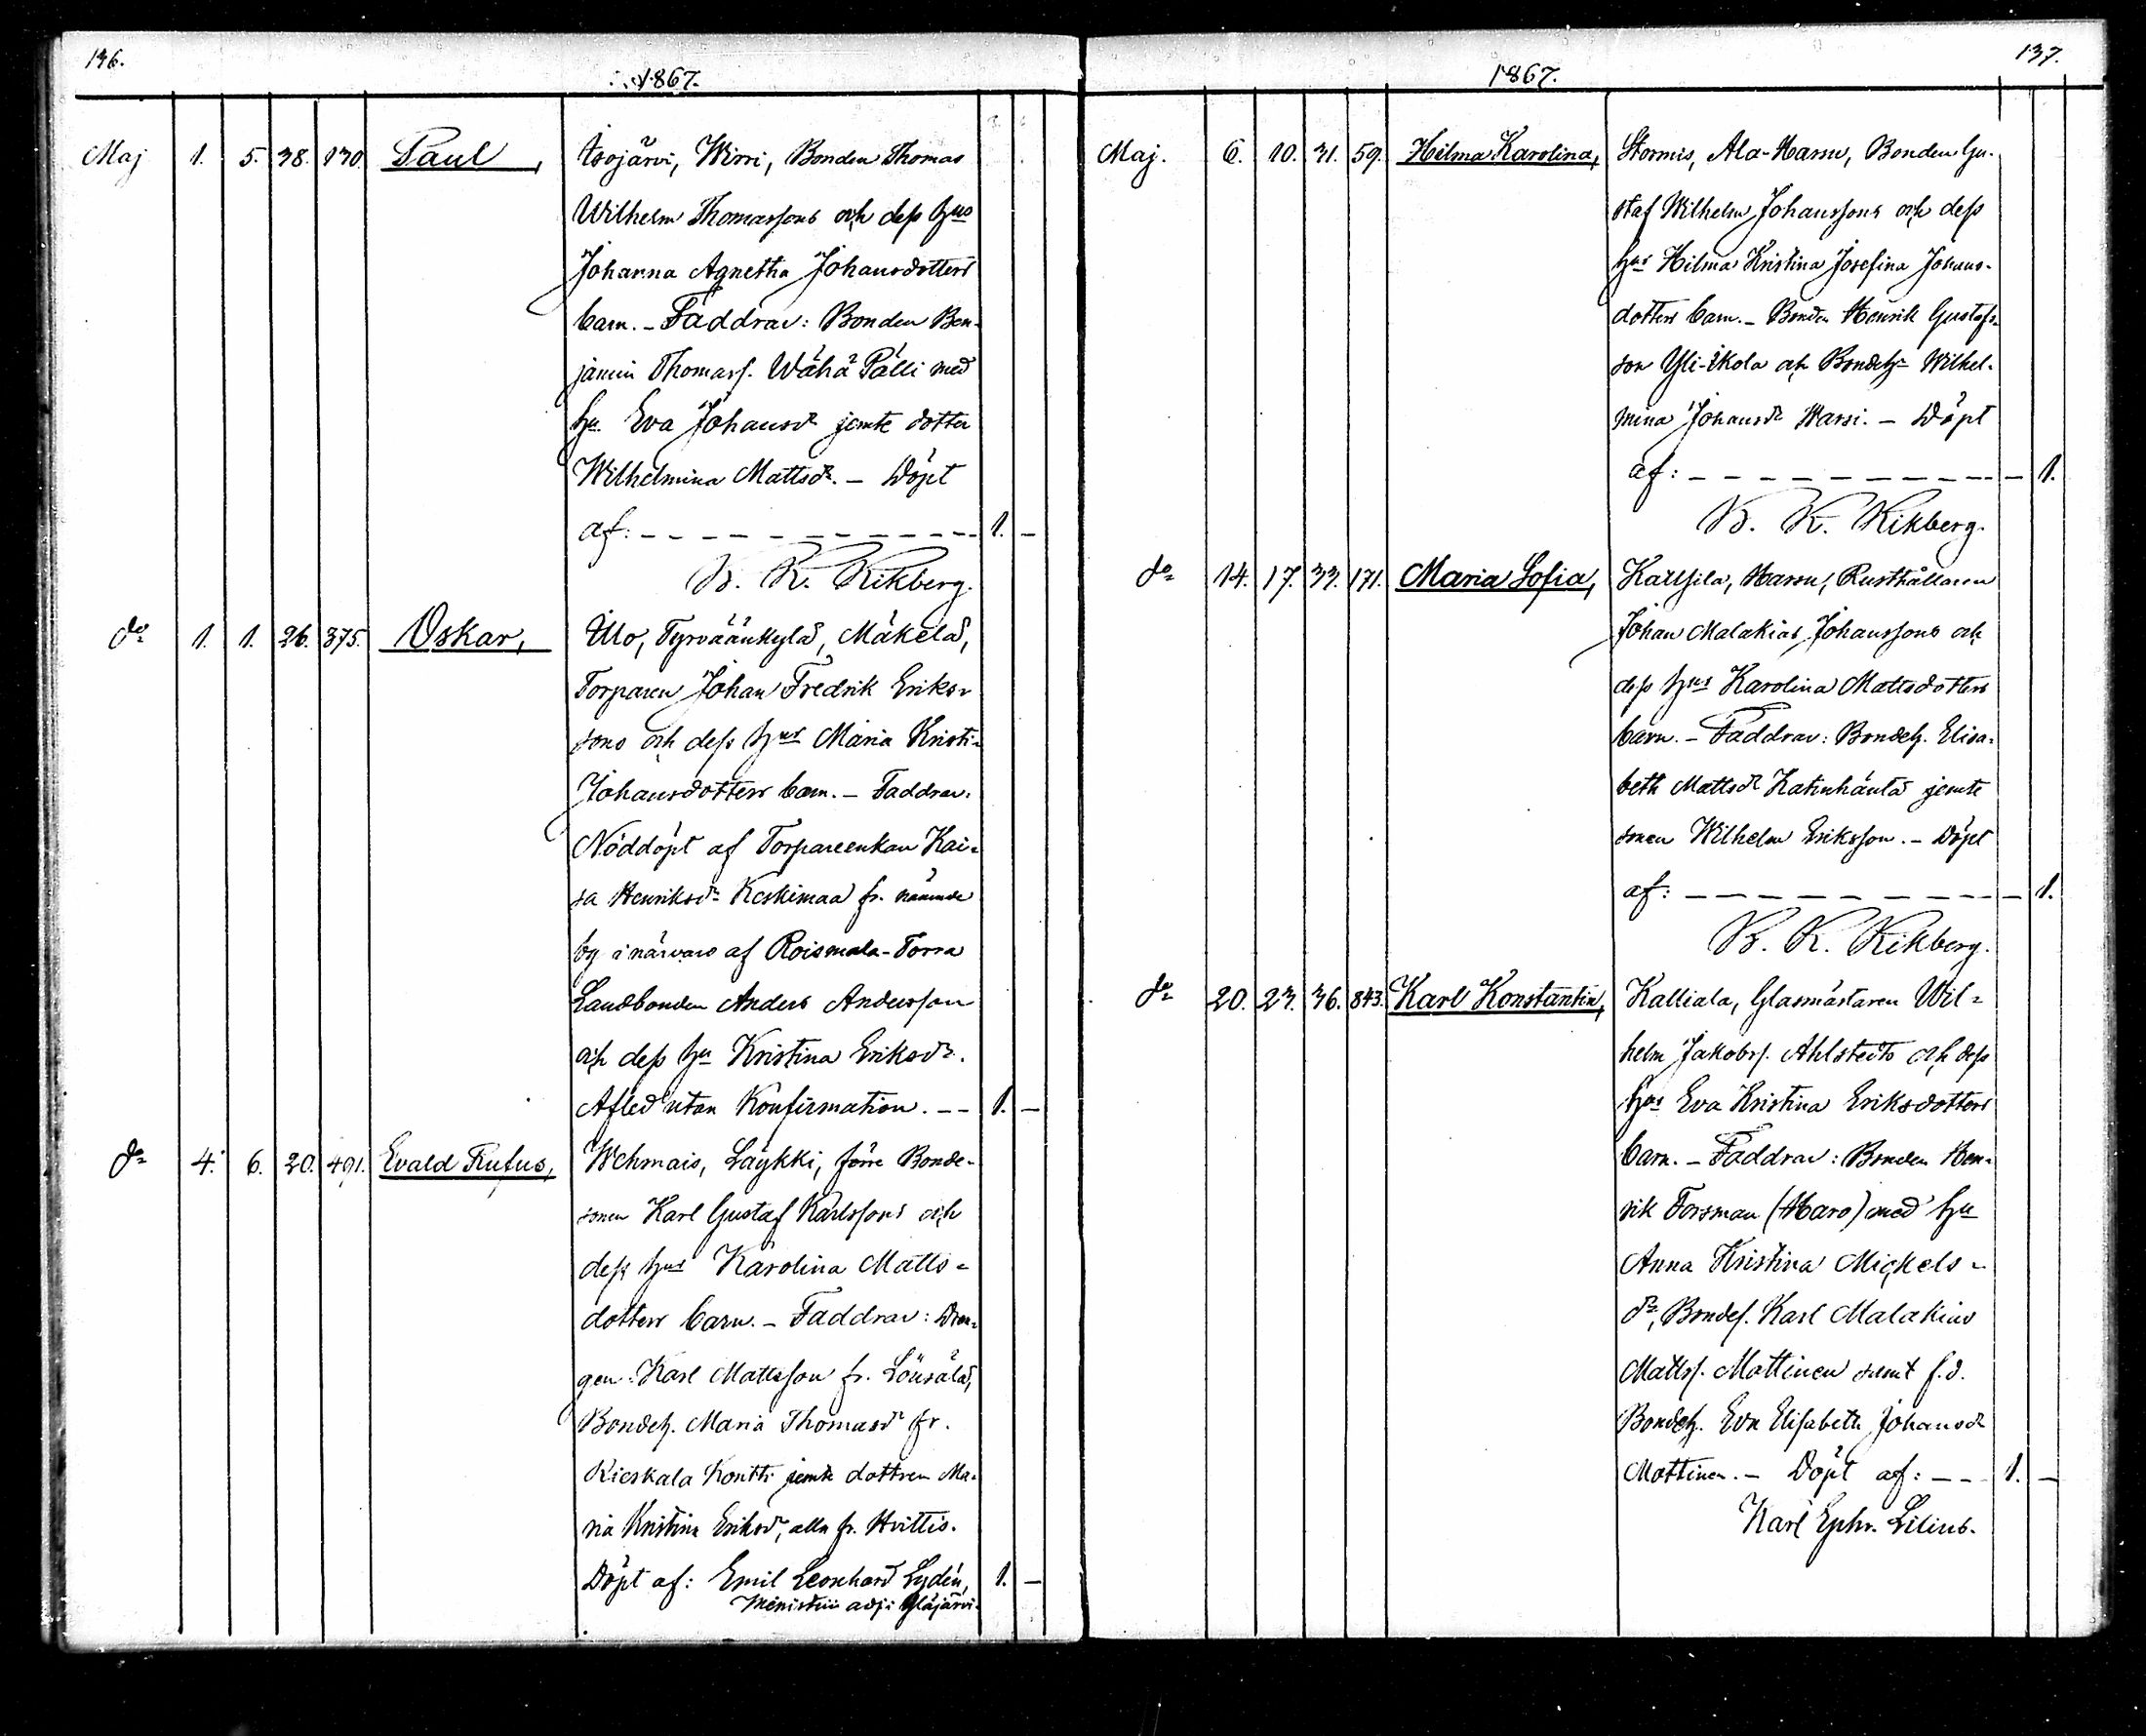 136.
1867.
Maj 1. 5. 38. 130. Paul, Isojärvi, Wirri, Bonden Thomas
Wilhelm Thomassons och dess hus
Johanna Agnetha Johansdotters
barn. - Faddrar: Bonden Ben-
jamin Thomass. Wähä Pälli med
hu Eva Johansdr jemte dotter
Wilhelmina Mattsdr. - Döpt
af: - - - - - - - - - - - 1. -
K. K. Kikberg.
do 1. 1. 26. 375. Oskar, Ulo, Tyrväänkylä, Mäkelä,
Torparen Johan Fredrik Eriks-
sons och dess hus Maria Kristi-
Johansdotters barn. - Faddrar:
Nöddöpt af Torpareenkan Kai-
sa Henriksdr Keskimaa fr. nämnde
by i närvaro af Roismala-Torra
Landbonden Anders Andersson
och dess hu Kristina Eriksdr.
Afled utan Konfirmation. - - 1. -
do 4. 6. 20. 491. Evald Rufus, Wehmais, Läykki, förre Bonde-
sonen Karl Gustaf Karlssons och
dess hus Karolina Matts-
dotters barn. - Faddrar: Dren-
gen Karl Mattsson fr. Lousala,
Bondeh. Maria Thomasdr fr.
Kieskala Kontti jemte dottren Ma-
ria Kristina Eriksdr, alla fr. Hvittis.
Döpt af: Emil Leonhard Lydén, 1. -
Ministerii adj: i Yläjärvi.
137.
1867.
Maj. 6. 10. 31. 59. Hilma Karolina, Stormis, Ala-Harsu, Bonden Gu-
staf Wilhelm Johanssons och dess
hus Hilma Kristina Josefina Johans-
dotters barn. - Bonden Henrik Gustafs-
son Yli-Ikola och Bondeh Wilhel-
mina Johansdr Warsi. - Döpt
af: - - - - - - - - - - - - 1.
K. K. Kikberg.
do 14. 17. 33. 171. Maria Sofia, Karttila, Harsu, Rusthållaren
Johan Malakias Johanssons och
dess hus Karolina Mattsdotters
barn. - Faddrar: Bondeh. Elisa-
beth Mattsdr Katinhänta jemte
sonen Wilhelm Eriksson. - Döpt
af: - - - - - - - - - - - - 1.
K. K. Kikberg.
do 20. 23. 36. 843. Karl Konstantin, Kalliala, Glasmästaren Wil-
helm Jakobs. Ahlstedts och dess
hus Eva Kristina Eriksdotters
barn. - Faddrar: Bonden Hen-
rik Forsman (Haro) med hu
Anna Kristina Mickels-
dr, Bondes. Karl Malakias
Mattss. Mattinen samt f.d.
Bondeh. Eva Elisabeth Johansdr
Mattinen. - Döpt af: - - 1. -
Karl Ephr. Lilius.